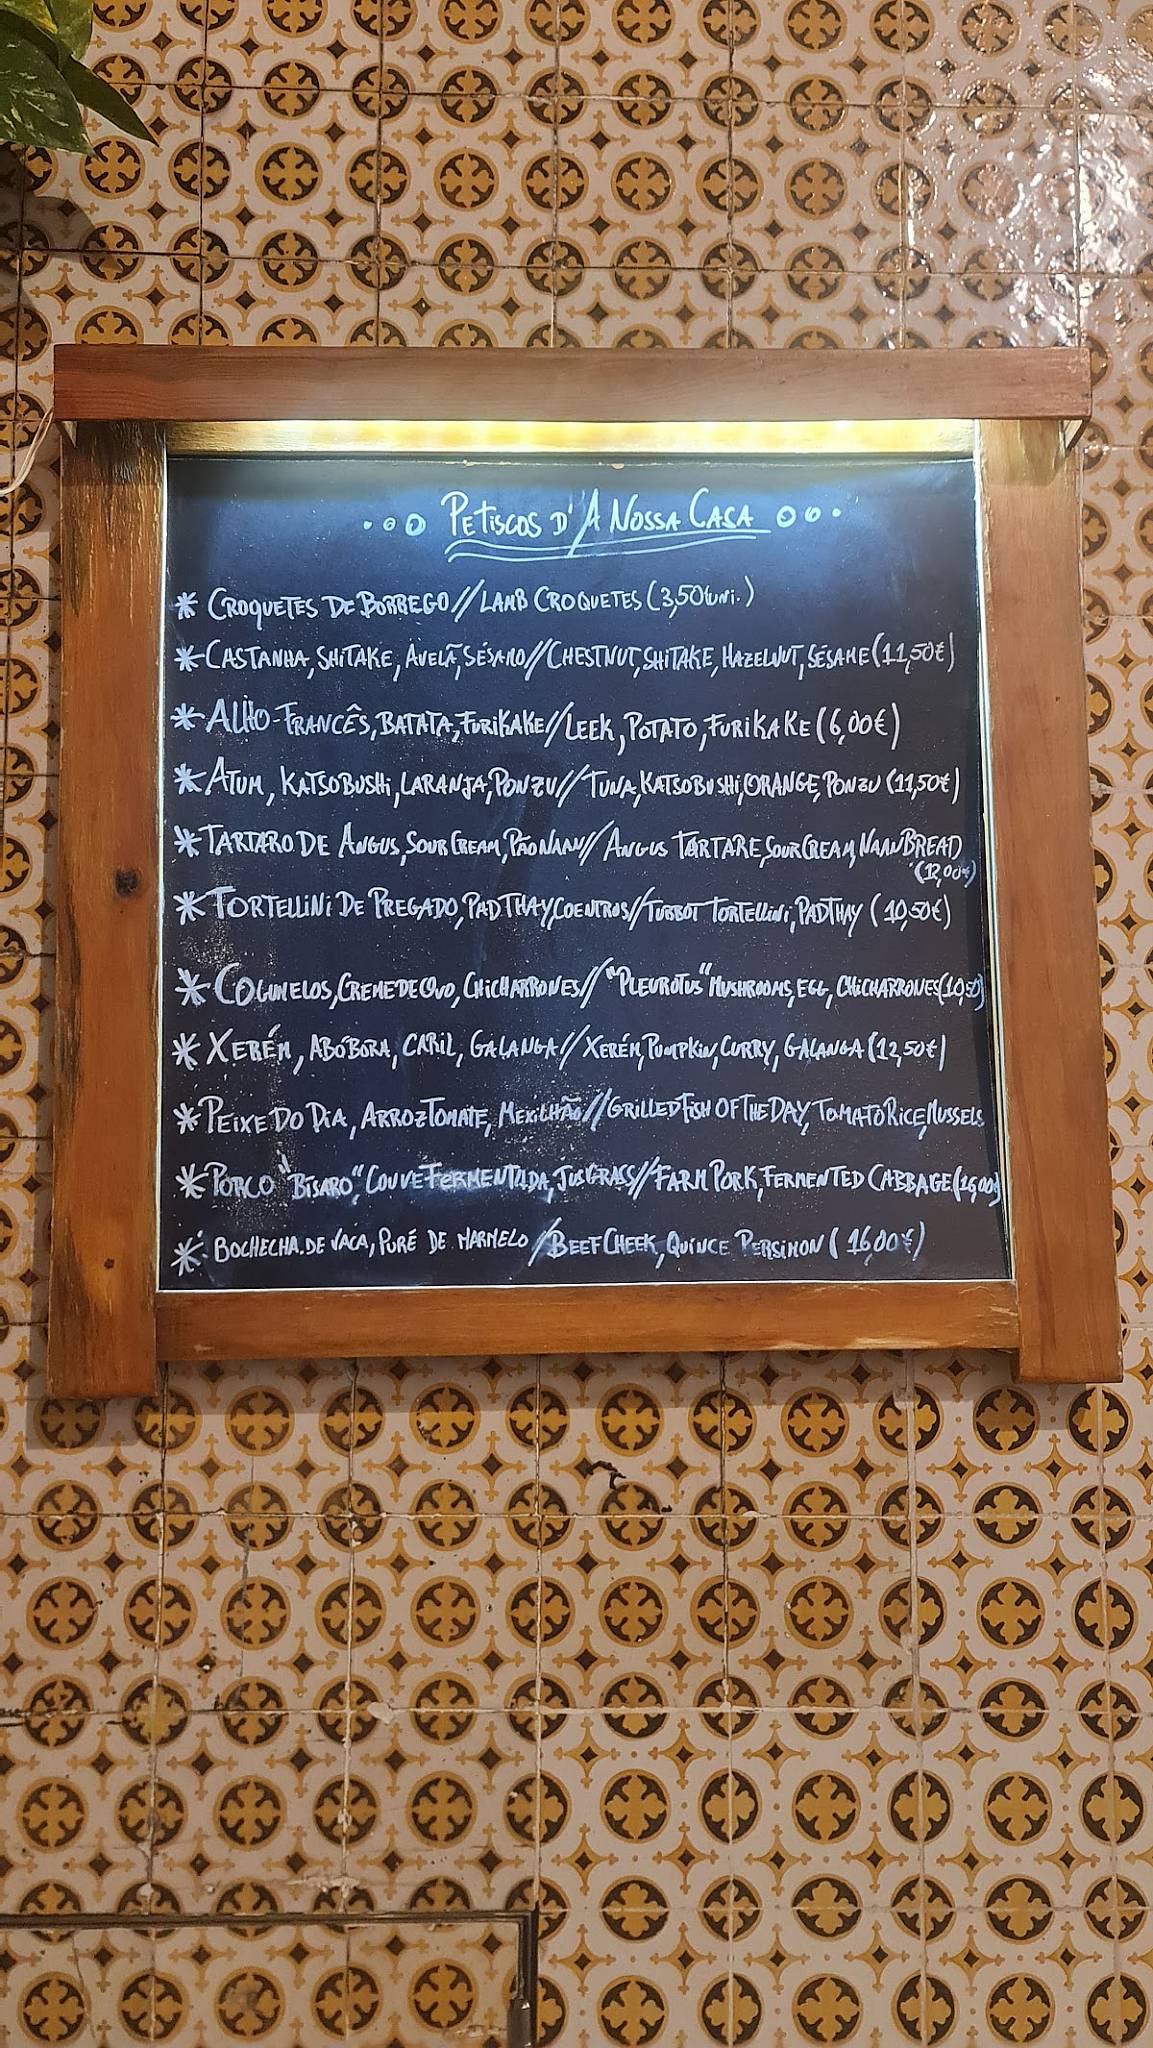 Petiscos d'A Nossa Casa
* Croquetes de Borrego // Lamb Croquetes (3,50€uni.)
* Castanha, Shitake, Avelã, Sésamo // Chestnut, Shitake, Hazelnut, Sésame (11,50€)
* Alho-Francês, Batata, Furikake // Leek, Potato, Furikake (6,00€)
* Atum, Katsobushi, Laranja, Ponzu // Tuna, Katsobushi, Orange, Ponzu (11,50€)
* Tartaro de Angus, Sour Cream, Pão Naan // Angus Tartare, Sour Cream, Naan Bread
(12,00€)
* Tortellini de Pregado, Pad Thay, Coentros // Turbot Tortellini, Pad Thay (10,50€)
* Cogumelos, Creme de Ovo, Chicharrones // "Pleurotus" Mushrooms, Egg, Chicharrones (10,50)
* Xerém, Abóbora, Caril, Galanga // Xerém, Pumpkin, Curry, Galanga (12,50€)
* Peixe do Dia, Arroz Tomate, Mexilhão // Grilled Fish of the Day, Tomato Rice, Mussels
* Porco "Bísaro", Couve Fermentada, Jus Grass // Farm Pork, Fermented Cabbage (16,00€)
* Bochecha de Vaca, Puré de Marmelo / Beef Cheek, Quince Persimon (16,00€)